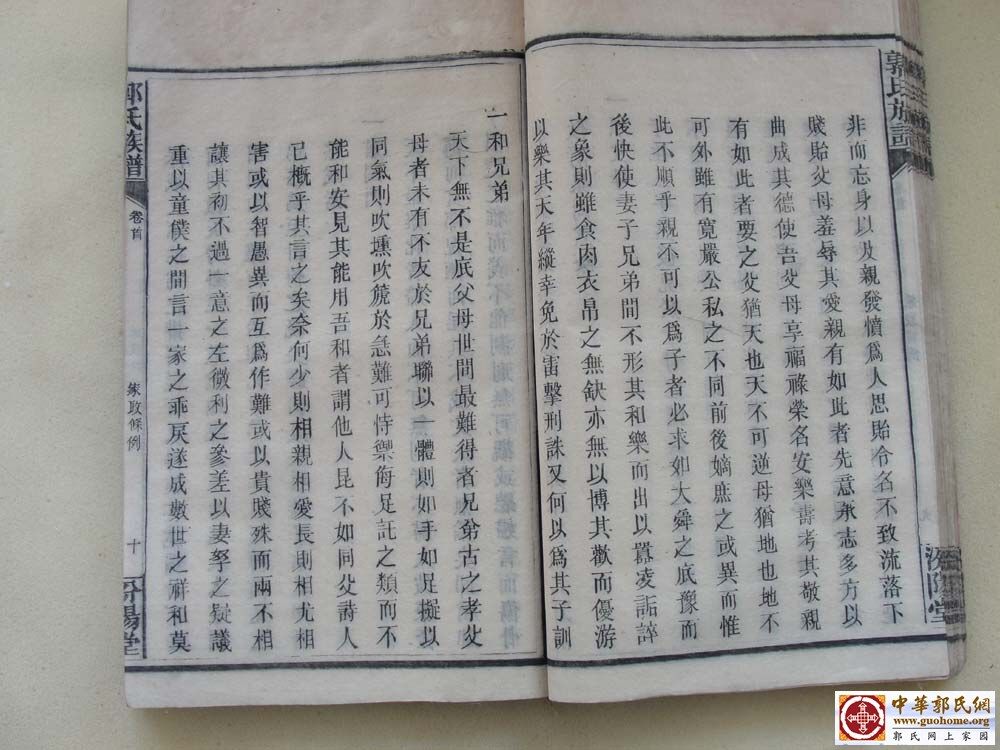 郭氏族譜
汾陽堂
非而忘身以及親發憤爲人思貽令名不致流落下
賤貽父母羞辱其愛親有如此者先意承志多方以
曲成其德使吾父母享福祿榮名安樂壽考其敬親
有如此者要之父猶天也天不可逆母猶地也地不
可外雖有寬嚴公私之不同前後嫡庶之或異而惟
此不順乎親不可以爲子者必求如大舜之底豫而
後快使妻子兄弟間不形其和樂而出以囂凌詬誶
之象則雖食肉衣帛之無缺亦無以博其歡而優游
以樂其天年縱幸免於雷擊刑誅又何以爲其子訓
一和兄弟
天下無不是底父母世間最難得者兄弟古之孝父
母者未有不友於兄弟聯以一體則如手如足擬以
同氣則吹壎吹箎於急難可恃禦侮足託之類而不
能和安見其能用吾和者謂他人昆不如同父詩人
已概乎其言之矣奈何少則相親相愛長則相尤相
害或以智愚異而互爲作難或以貴賤殊而兩不相
讓其初不過一意之左微利之參差以妻孥之疑議
重以童僕之間言一家之乖戾遂成數世之祥和莫
郭氏族譜
卷首
家政條例
十
汾陽堂
中華郭氏網
www.guohome.org
郭氏网上家园